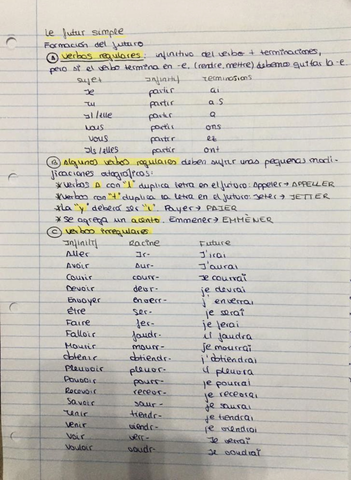 Le futur simple
Formación del futuro
A verbos regulares: infinitivo del verbo + terminaciones,
pero si el verbo termina en -e. (rendre, mettre) debemos quitar la -e.
Sujet Infinitif Terminaisons
Je partir ai
Tu partir as
Il/elle partir a
Nous partir ons
Vous partir et
Ils/elles partir ont
B Algunos verbos regulares deben sufrir unas pequeñas modi-
ficaciones otograficas:
* Verbos Δ con "l" duplica letra en el futuro: Appeler → APPELLER
* Verbos con "t" duplica la letra en el futuro: Jeter → JETTER
* La "y" debera ser "i". Payer → PAIER
* Se agrega un acento. Emmener → EMMÈNER
C verbos irregulares:
Infinitif Racine Future
Aller Ir- J'irai
Avoir Aur- J'aurai
Courir courr- Je courrai
Devoir devr- je devrai
Envoyer enverr- j'enverrai
Être Ser- je serai
Faire fer- je ferai
Falloir faudr- il faudra
Mourir mourr- je mourrai
obtenir obtiendr- j'obtiendrai
Pleuvoir pleuvr- il pleuvra
Pouvoir pourr- je pourrai
Recevoir recevr- je recevrai
Savoir saur- je saurai
Tenir tiendr- je tiendrai
venir viendr- je viendrai
Voir verr- Je verrai
Vouloir voudr- Je voudrai